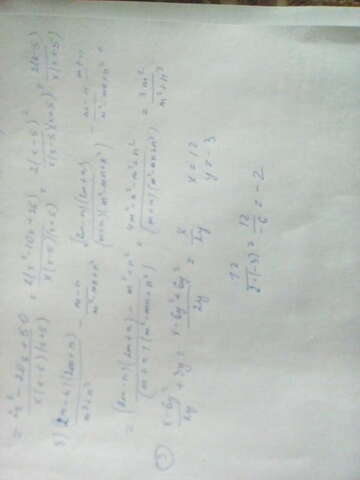 = 2x² - 20x + 50 / x(x-5)(x+5) = 2(x² - 10x + 25) / x(x-5)(x+5) = 2(x-5)² / x(x-5)(x+5) = 2(x-5) / x(x+5)
(2m-n)(2m+n) / m³+n³ - m-n / m²-mn+n² = (2m-n)(2m+n) / (m+n)(m²-mn+n²) - m-n / m²-mn+n² ·
= (2m-n)(2m+n) - m²+n² / (m+n)(m²-mn+n²) = 4m²-n²-m²+n² / (m+n)(m²-mn+n²) = 3m² / m³+n³
x-6y² / 2y + 3y = x-6y²+6y² / 2y = x / 2y x=12 y=-3
12 / 2·(-3) = 12 / -6 = -2